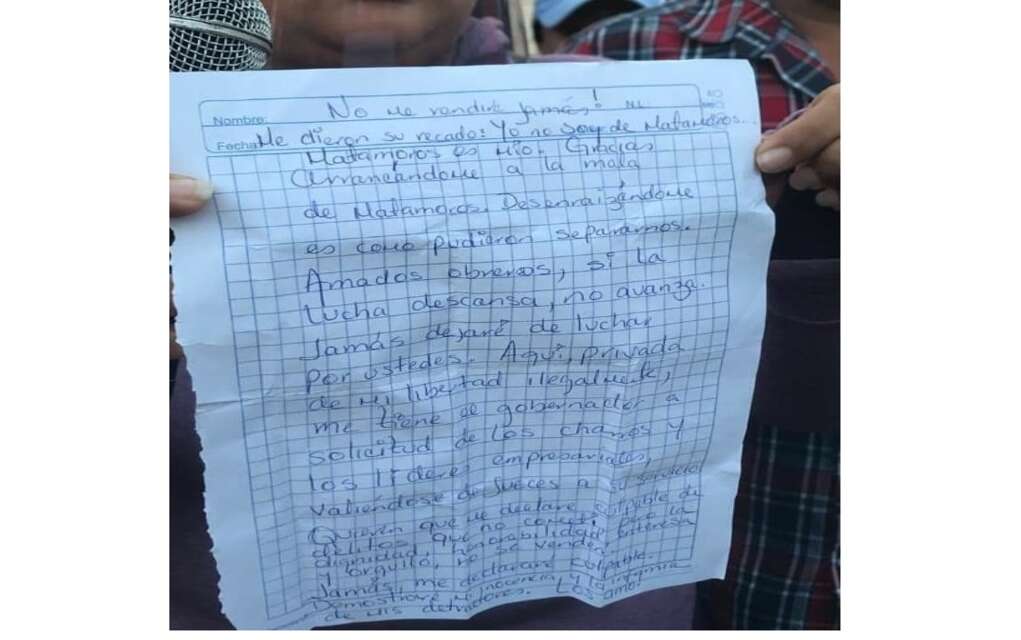 Nombre: No me rendiré jamás!
Fecha: Me dieron su recado: Yo no soy de Matamoros...
Matamoros es mío. Gracias
Arrancándome a la mala
de Matamoros. Desenraizándome
es como pudieron separarnos.
Amados obreros, si la
lucha descansa, no avanza.
Jamás dejaré de luchar
por ustedes. Aquí, privada
de mi libertad ilegalmente,
me tiene el gobernador a
solicitud de los charros y
los líderes empresariales,
valiéndose de jueces a su servicio
Quieren que me declare culpable de
delitos que no cometí. Pero la
dignidad, honorabilidad, entereza
y orgullo, no se venden.
Jamás, me declararé culpable.
Demostraré mi inocencia, y la infamia
de mis detractores. Los amo!